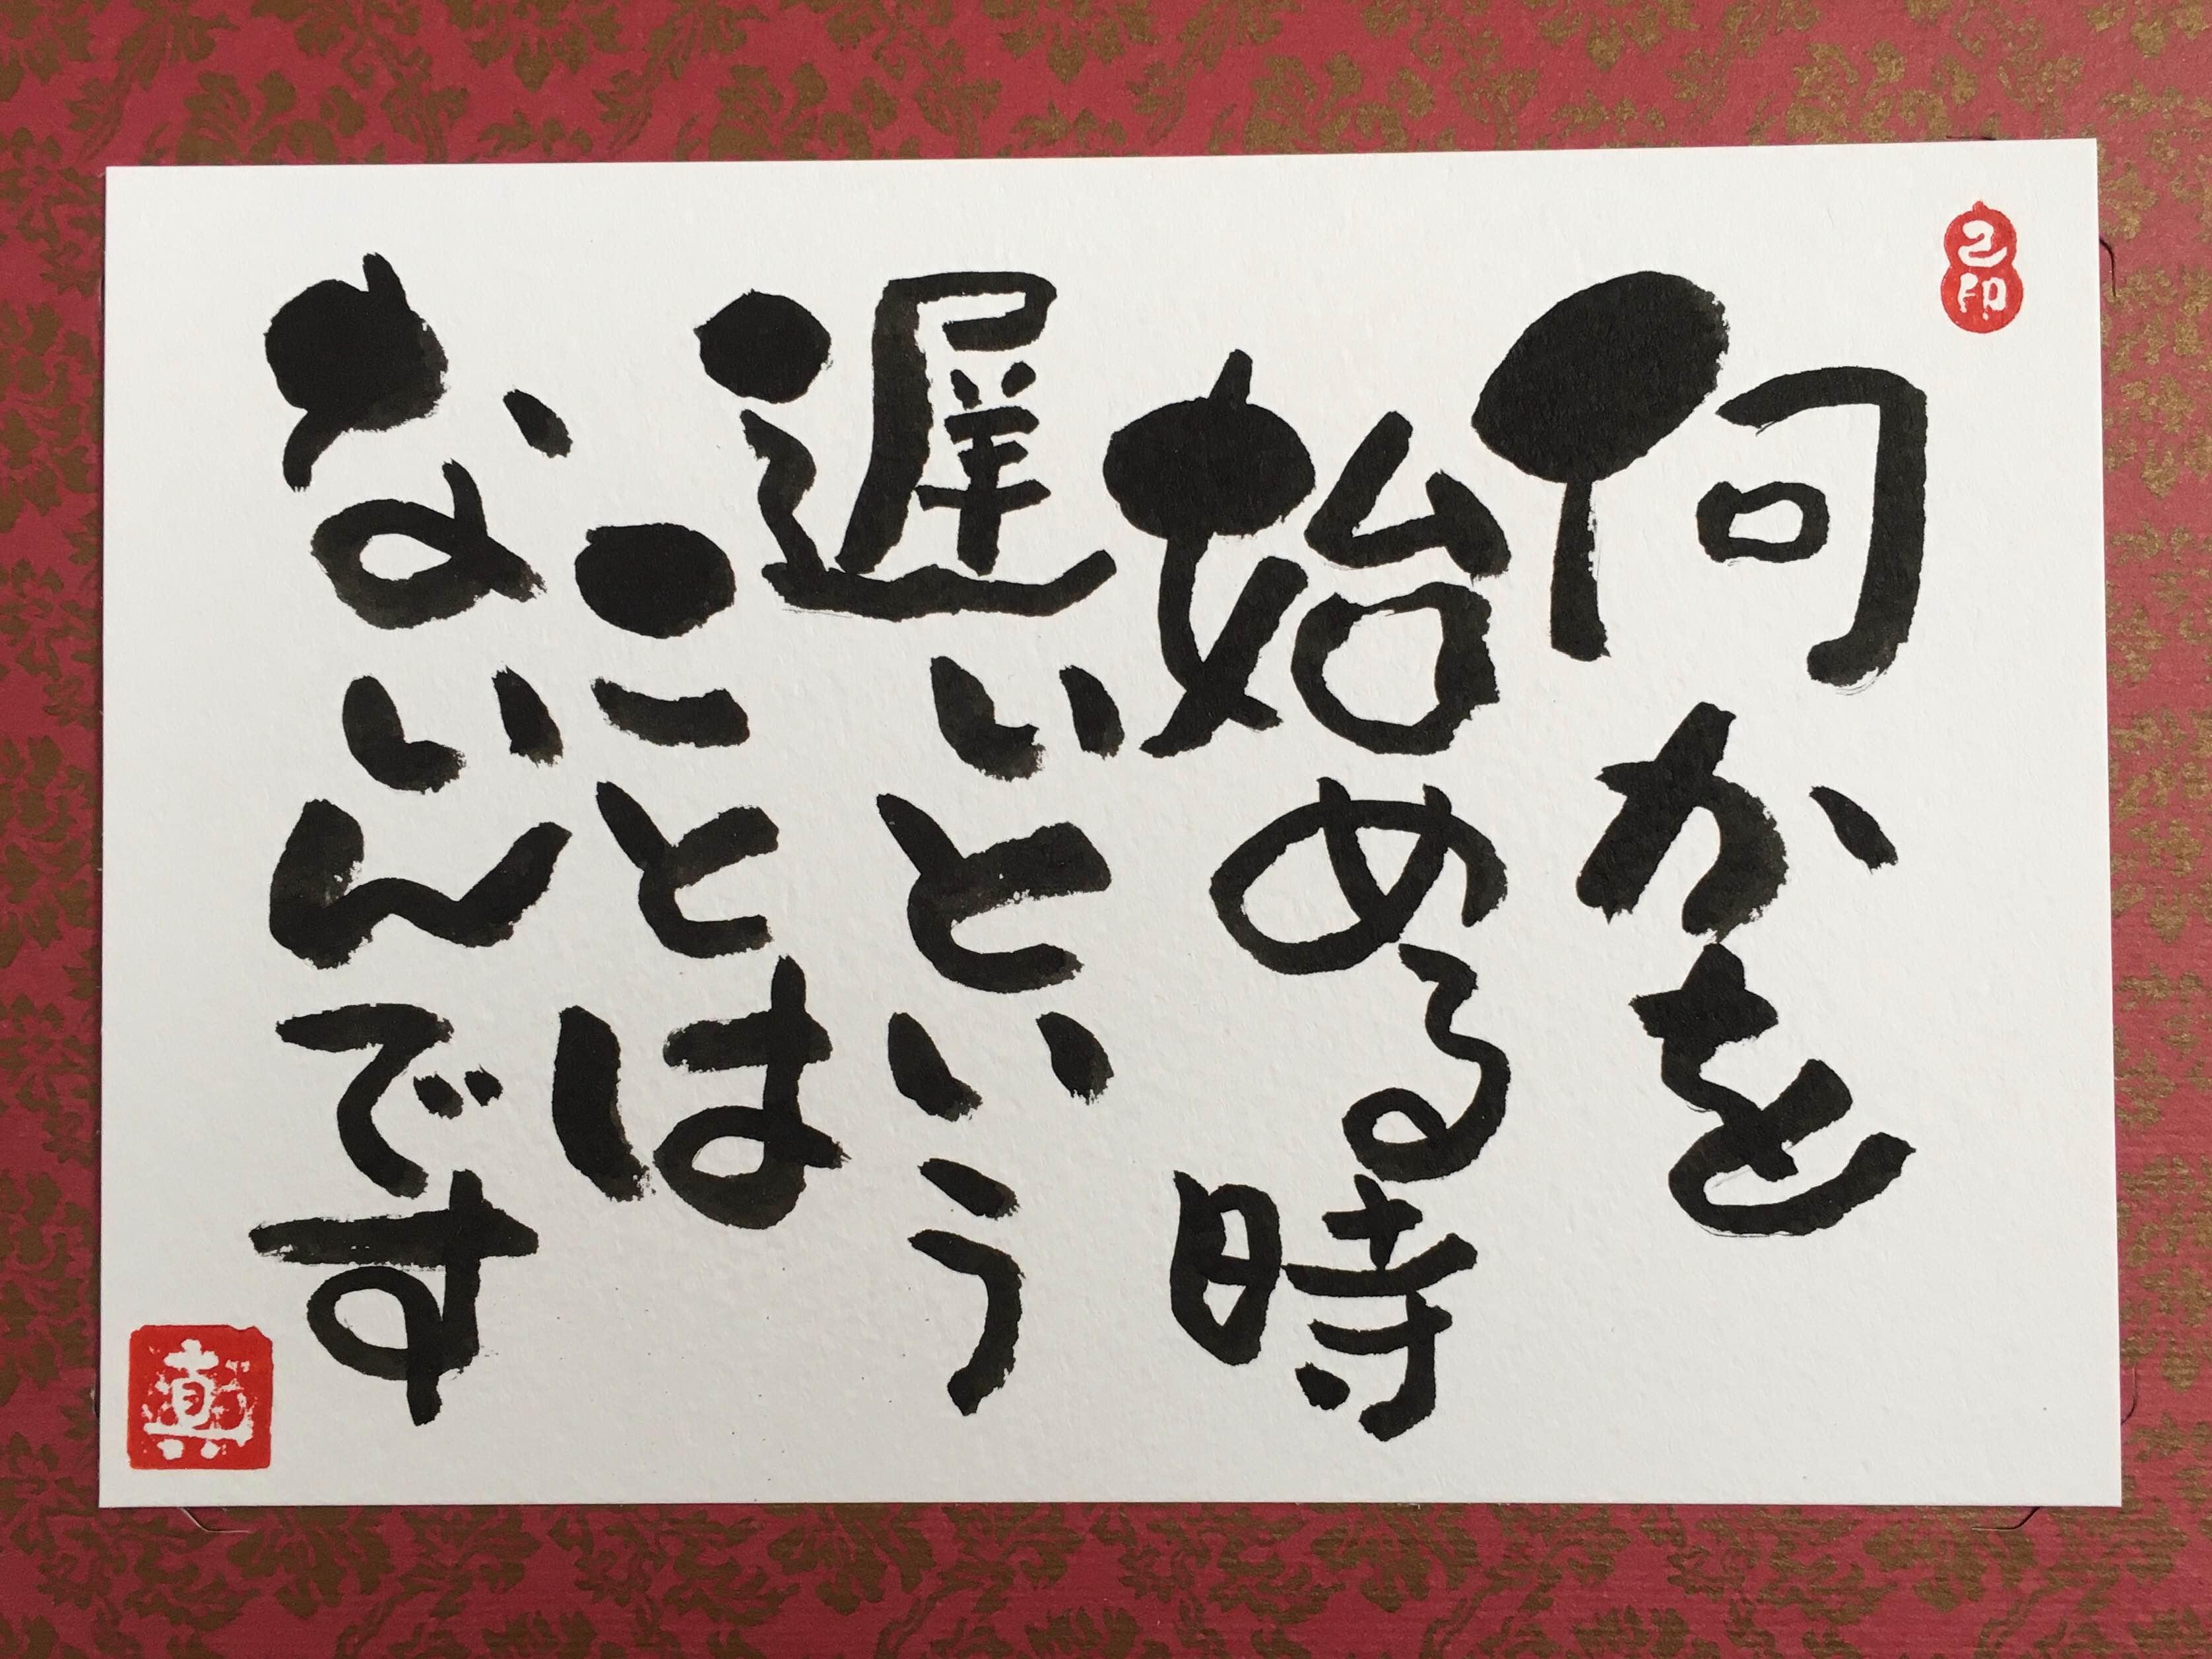 何かを
始める時
遅いという
ことは
ないんです
己印
真